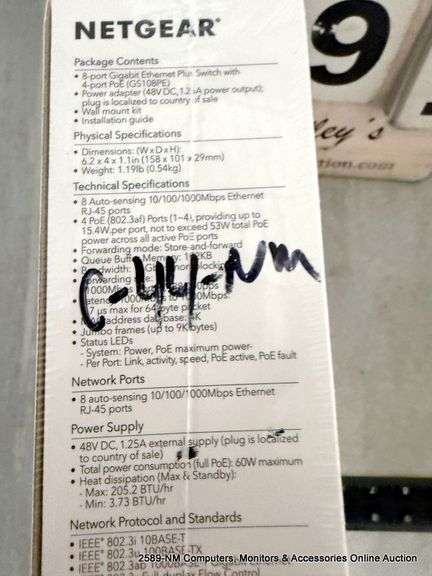 NETGEAR®
Package Contents
• 8-port Gigabit Ethernet Plus Switch with
4-port PoE (GS108PE)
• Power adapter (48V DC, 1.25A power output);
plug is localized to country of sale
• Wall mount kit
• Installation guide
Physical Specifications
• Dimensions: (W x D x H):
6.2 x 4 x 1.1in (158 x 101 x 29mm)
• Weight: 1.19lb (0.54kg)
Technical Specifications
• 8 Auto-sensing 10/100/1000Mbps Ethernet
RJ-45 ports
• 4 PoE (802.3af) Ports (1~4), providing up to
15.4W per port, not to exceed 53W total PoE
power across all active PoE ports
• Forwarding mode: Store-and-forward
• Queue Buffer Memory: 192KB
C-44-NM
max for 64-byte packet
address database: 4K
• Jumbo frames (up to 9K bytes)
• Status LEDs
- System: Power, PoE maximum power
- Per Port: Link, activity, speed, PoE active, PoE fault
Network Ports
• 8 auto-sensing 10/100/1000Mbps Ethernet
RJ-45 ports
Power Supply
• 48V DC, 1.25A external supply (plug is localized
to country of sale)
• Total power consumption (full PoE): 60W maximum
• Heat dissipation (Max & Standby):
- Max: 205.2 BTU/hr
- Min: 3.73 BTU/hr
Network Protocol and Standards
• IEEE® 802.3i 10BASE-T
• IEEE® 802.3u 100BASE-TX
• IEEE® 802.3ab 1000BASE-T
9
ley's
tion.com
2589-NM Computers, Monitors & Accessories Online Auction